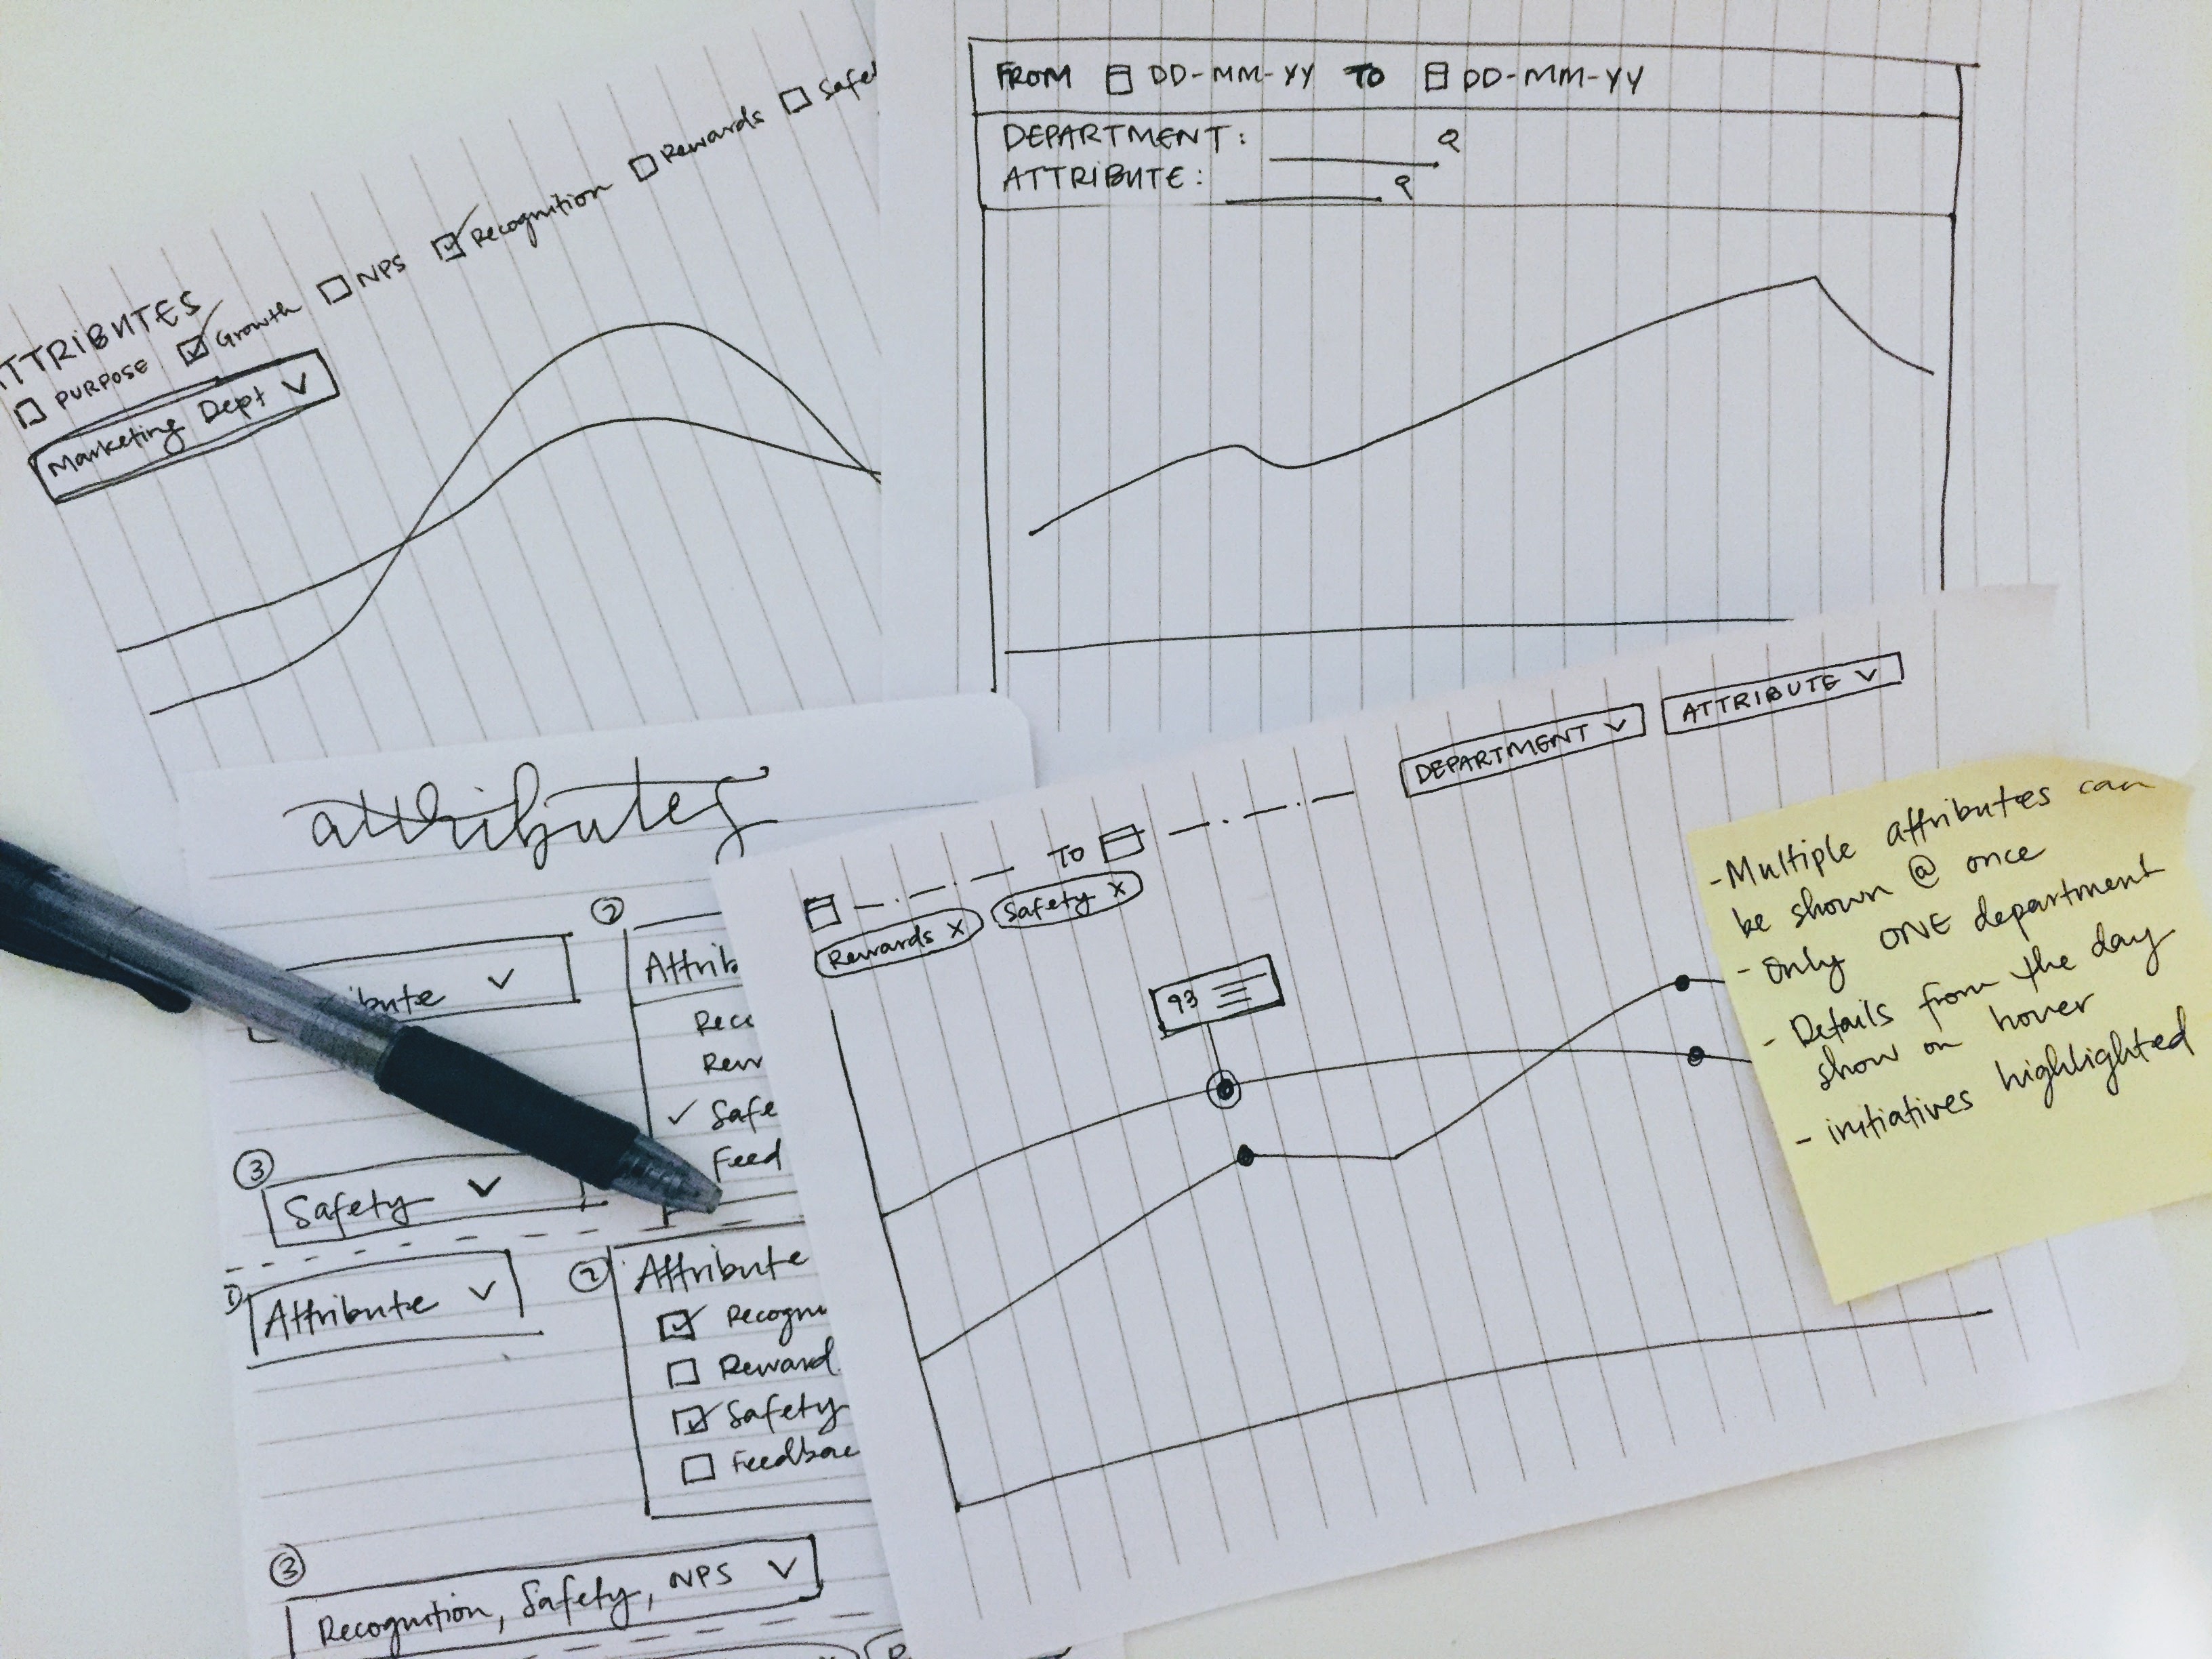 ATTRIBUTES
PURPOSE Growth NPS Recognition Rewards
Marketing Dept
FROM DD-MM-YY TO DD-MM-YY
DEPARTMENT:
ATTRIBUTE:
attributes
2
Attrib
Safe
Feed
3
Safety
1
Attribute
2
Attribute
Recogni
Reward
Safety
Feedbac
3
Recognition, Safety, NPS
TO
DEPARTMENT
ATTRIBUTE
Rewards x
Safety x
93
- Multiple attributes can
be shown @ once
- Only ONE department
- Details from the day
show on hover
- initiatives highlighted